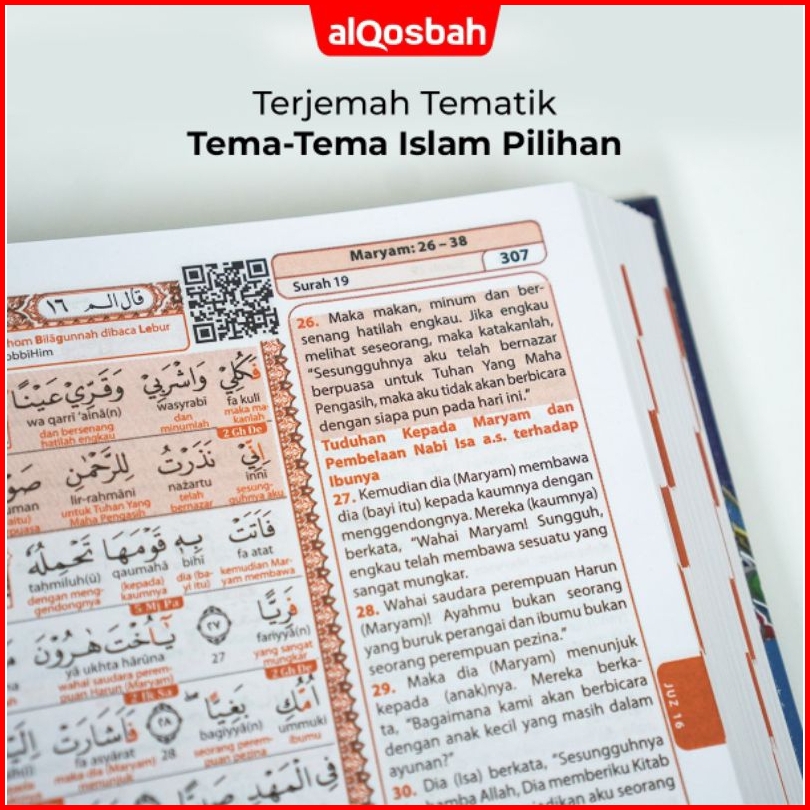 alQosbah
Terjemah Tematik
Tema-Tema Islam Pilihan
Maryam: 26 – 38
Surah 19
307
قال الم ١٦
Bilāgunnah dibaca Lebur
فَكُلِيْ وَاشْرَبِيْ وَقَرِّيْ عَيْنًا
fa kulī wasyrabī wa qarrī ‘ainā(n)
maka ma- dan dan bersenang
kanlah minumlah hatilah engkau
2 Gh De
اِنِّيْ نَذَرْتُ لِلرَّحْمٰنِ
innī nażartu lir-rahmāni
sesung- telah untuk Tuhan Yang
guhnya aku bernazar Maha Pengasih
فَاَتَتْ بِهٖ قَوْمَهَا تَحْمِلُهٗ
fa atat bihī qaumahā taḥmiluh(ū)
kemudian Mar- dia (ba- (kepada) dengan meng-
yam membawa yi itu) kaumnya gendongnya
5 Mj Pa
فَرِيًّا ٢٧ يٰٓاُخْتَ هٰرُوْنَ
fariyyā(n) 27 yā ukhta hārūna
yang sangat wahai saudara perem-
mungkar puan Harun (Maryam)
2 Gh De
اُمُّكِ بَغِيًّا ٢٨ فَاَشَارَتْ
ummuki bagiyyā(n) 28 fa asyārat
ibumu seorang perem- maka dia (Maryam)
puan pezina menunjuk
فِى الْمَهْدِ
26. Maka makan, minum dan ber-
senang hatilah engkau. Jika engkau
melihat seseorang, maka katakanlah,
“Sesungguhnya aku telah bernazar
berpuasa untuk Tuhan Yang Maha
Pengasih, maka aku tidak akan berbicara
dengan siapa pun pada hari ini.”
Tuduhan Kepada Maryam dan
Pembelaan Nabi Isa a.s. terhadap
Ibunya
27. Kemudian dia (Maryam) membawa
dia (bayi itu) kepada kaumnya dengan
menggendongnya. Mereka (kaumnya)
berkata, “Wahai Maryam! Sungguh,
engkau telah membawa sesuatu yang
sangat mungkar.
28. Wahai saudara perempuan Harun
(Maryam)! Ayahmu bukan seorang
yang buruk perangai dan ibumu bukan
seorang perempuan pezina.”
29. Maka dia (Maryam) menunjuk
kepada (anak)nya. Mereka berka-
ta, “Bagaimana kami akan berbicara
dengan anak kecil yang masih dalam
ayunan?”
30. Dia (Isa) berkata, “Sesungguhnya
hamba Allah, Dia memberiku Kitab
aku seorang
JUZ 16